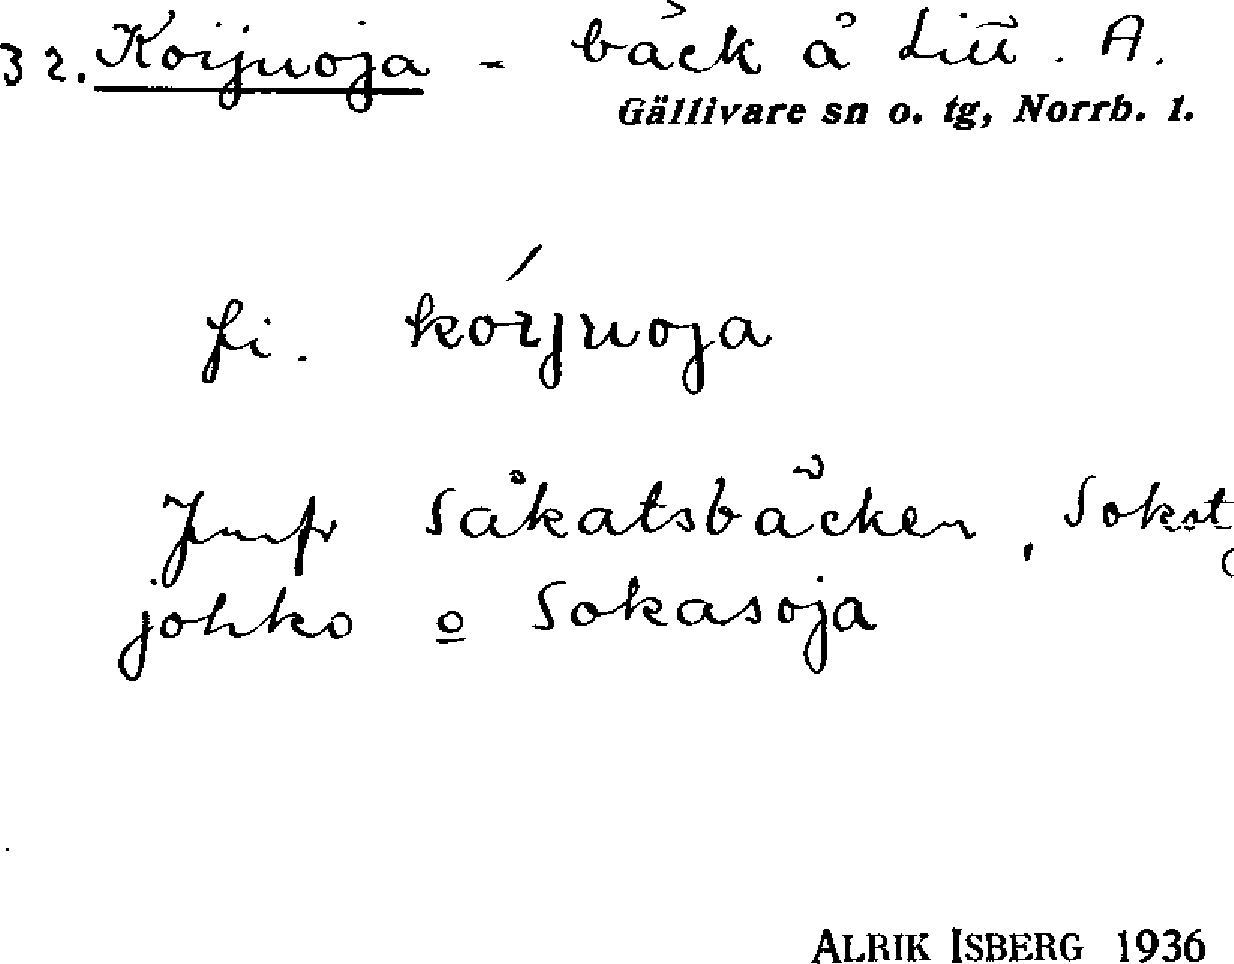 32. Koijuoja - bäck å Litt. A.
Gällivare sn o. tg, Norrb. l.
fi. koijuoja
Jmfr Såkatsbäcken, Sokst
johko o Sokasoja
ALRIK ISBERG 1936